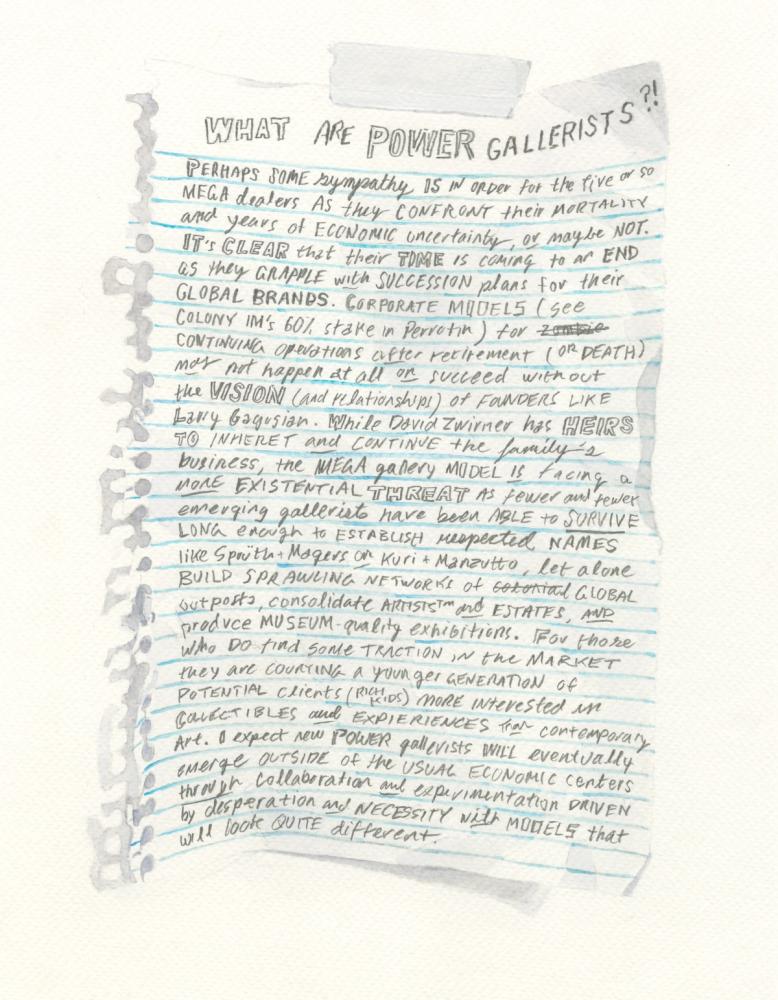 WHAT ARE POWER GALLERISTS?!
PERHAPS SOME sympathy IS IN ORDER for the five or so
MEGA dealers AS they CONFRONT their MORTALITY
and years of ECONOMIC uncertainty, or maybe NOT.
IT'S CLEAR that their TIME is coming to an END
as they GRAPPLE with SUCCESSION plans for their
GLOBAL BRANDS. CORPORATE MODELS (see
COLONY IM's 60% stake in Perrotin) for zombie
CONTINUING operations after retirement (OR DEATH)
may not happen at all or succeed without
the VISION (and relationships) of FOUNDERS LIKE
Larry Gagosian. While David Zwirner has HEIRS
TO INHERET and CONTINUE the family's
business, the MEGA gallery MODEL IS facing a
MORE EXISTENTIAL THREAT AS fewer and fewer
emerging gallerists have been ABLE to SURVIVE
LONG enough to ESTABLISH respected NAMES
like Sprüth + Magers or Kuri + Manzutto, let alone
BUILD SPRAWLING NETWORKS of colonial GLOBAL
outposts, consolidate ARTISTS™ and ESTATES, AND
produce MUSEUM-quality exhibitions. For those
who DO find some TRACTION IN the MARKET
they are COURTING a younger GENERATION of
POTENTIAL clients (RICH KIDS) MORE interested in
COLLECTIBLES and EXPIERIENCES than contemporary
Art. I expect new POWER gallerists WILL eventually
emerge OUTSIDE of the USUAL ECONOMIC centers
through collaboration and experimentation DRIVEN
by desperation and NECESSITY with MODELS that
will look QUITE different.